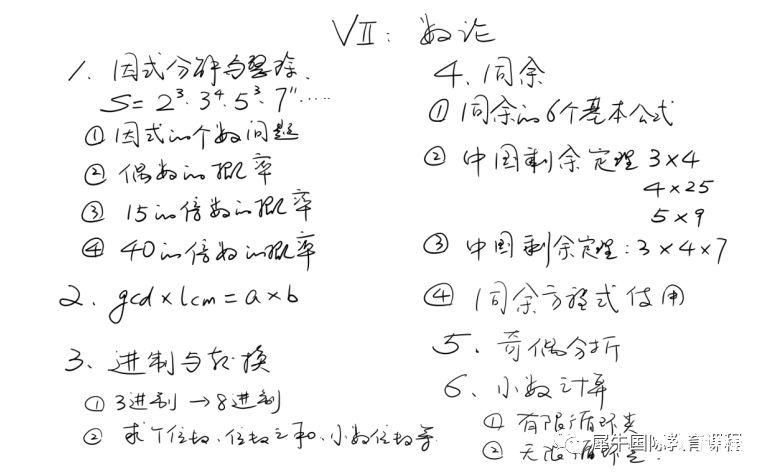 VII: 数论
1. 因式分解与整除.
S = 2³·3⁴·5³·7¹¹……
① 因式的个数问题
② 偶数的概率
③ 15的倍数的概率
④ 40的倍数的概率
2. gcd×lcm=a×b
3. 进制与转换
① 3进制→8进制
② 求个位数、位数之和、小数位数等
4. 同余
① 同余的6个基本公式
② 中国剩余定理 3×4
4×25
5×9
③ 中国剩余定理: 3×4×7
④ 同余方程式使用
5. 奇偶分折
6. 小数计算
① 有限循环类
② 无限循环
犀牛国际教育课程